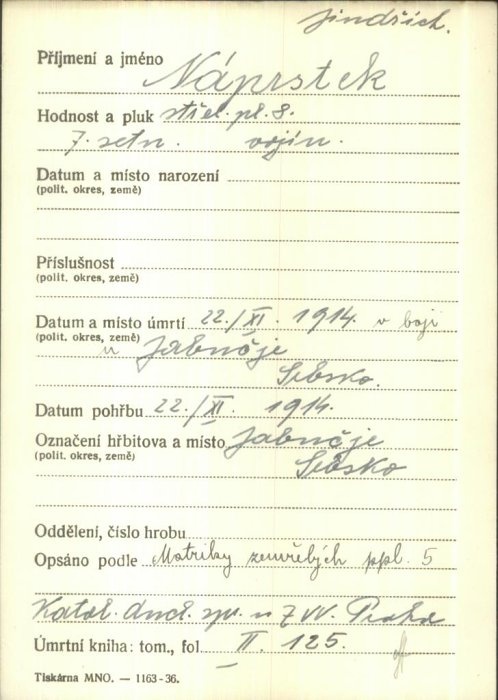 Jindřich.
Příjmení a jméno Náprstek
Hodnost a pluk střel. pl. 8.
7. setn. vojín.
Datum a místo narození
(polit. okres, země)
Příslušnost
(polit. okres, země)
Datum a místo úmrtí 22./XI. 1914. v boji
(polit. okres, země) u Jabučje
Srbsko.
Datum pohřbu 22./XI. 1914.
Označení hřbitova a místo Jabučje
(polit. okres, země) Srbsko
Oddělení, číslo hrobu
Opsáno podle Matriky zemřelých ppl. 5
Katol. duch. spr. u 7 VV. Praha
Úmrtní kniha: tom., fol. II. 125.
Tiskárna MNO. — 1163-36.